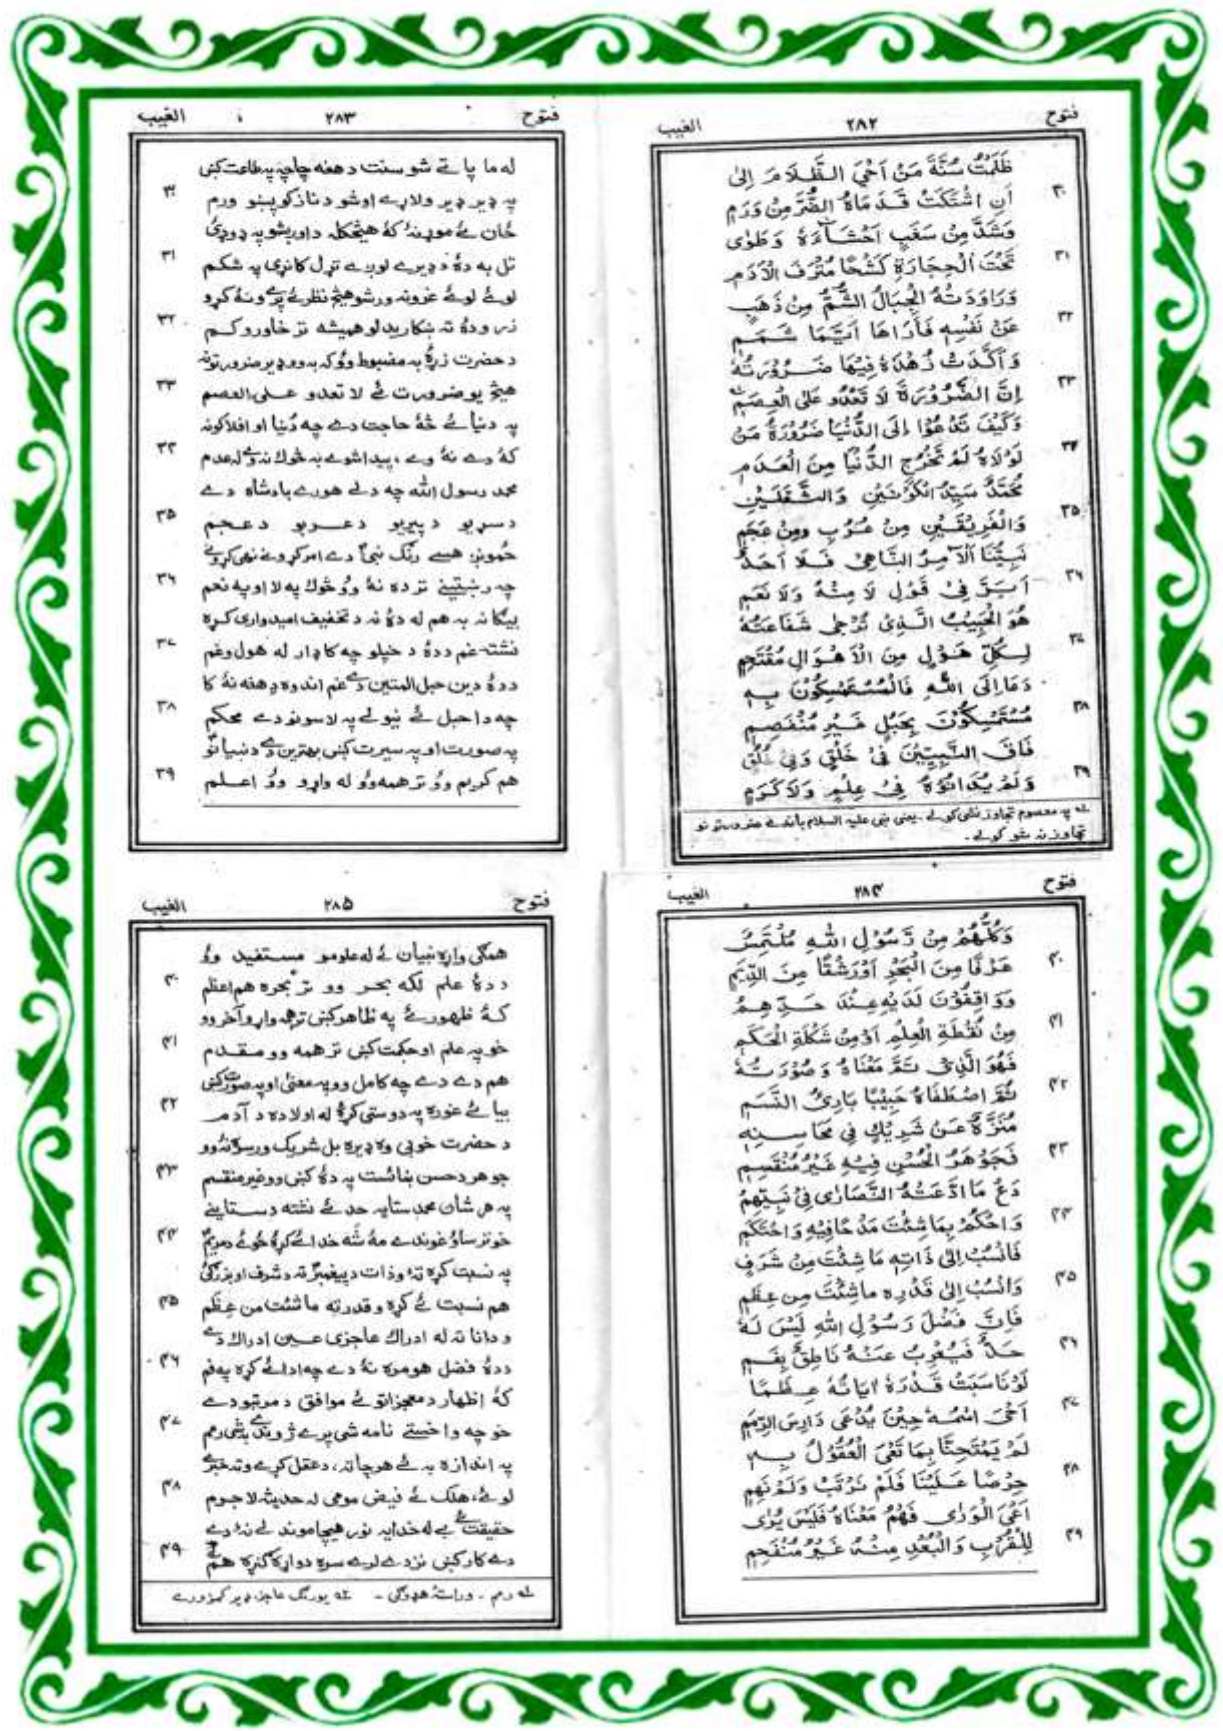 فتوح ۲۸۲ الغيب
ظَلَمْتُ سُنَّةَ مَنْ اَحْيَ الظَّلَامَ اِلٰى
۳۰ اَنِ اشْتَكَتْ قَدَمَاهُ الضُّرَّ مِنْ وَرَمٍ
وَشَدَّ مِنْ سَغَبٍ اَحْشَآءَهٗ وَطَوٰى
۳۱ تَحْتَ الْحِجَارَةِ كَشْحًا مُتْرَفَ الْاَدَمِ
وَرَاوَدَتْهُ الْجِبَالُ الشُّمُّ مِنْ ذَهَبٍ
۳۲ عَنْ نَفْسِهٖ فَاَرَاهَا اَيَّمَا شَمَمٍ
وَاَكَّدَتْ زُهْدَهٗ فِيْهَا ضَرُوْرَتُهٗ
۳۳ اِنَّ الضَّرُوْرَةَ لَا تَعْدُو عَلَى الْعِصَمِ
وَكَيْفَ تَدْعُوْا اِلَى الدُّنْيَا ضَرُوْرَةُ مَنْ
۳۴ لَوْلَاهُ لَمْ تَخْرُجِ الدُّنْيَا مِنَ الْعَدَمِ
مُحَمَّدٌ سَيِّدُ الْكَوْنَيْنِ وَالثَّقَلَيْنِ
۳۵ وَالْفَرِيْقَيْنِ مِنْ عُرْبٍ وَمِنْ عَجَمٍ
نَبِيُّنَا الْاٰمِرُ النَّاهِىْ فَلَا اَحَدٌ
۳۶ اَبَرَّ فِىْ قَوْلِ لَا مِنْهُ وَلَا نَعَمِ
هُوَ الْحَبِيْبُ الَّذِىْ تُرْجٰى شَفَاعَتُهٗ
۳۷ لِكُلِّ هَوْلٍ مِنَ الْاَهْوَالِ مُقْتَحِمٍ
دَعَا اِلَى اللّٰهِ فَالْمُسْتَمْسِكُوْنَ بِهٖ
۳۸ مُسْتَمْسِكُوْنَ بِحَبْلٍ غَيْرِ مُنْفَصِمٍ
فَاقَ النَّبِيِّيْنَ فِىْ خَلْقٍ وَفِىْ خُلُقٍ
۳۹ وَلَمْ يُدَانُوْهُ فِىْ عِلْمٍ وَلَا كَرَمٍ
له په معصوم تجاوز نشي كولے۔ يعنى نبى عليه السلام باندے ضرورتونو
تجاوز نه شو كولے۔
فتوح ۲۸۳ الغيب
له ما پاتے شو سنت دهغه چاچه په طاعت كښى
۳۰ په ډير ډير ولاړے اوشو د نازكو پښو ورم
ځان ئے موړ نه كه هيڅكله داوربشو په ډوډئ
۳۱ تل به ده د ډيرے لوږے تړل كانړى په شكم
لوئے لوئے غرونه ورشو هيڅ نظر ئے پرے ونه كړو
۳۲ زر وده ته ښكاريدلو هميشه تر خاورو كم
د حضرت زړهٔ به مضبوط وؤ كه به وو ډير ضرورتونه
۳۳ هيڅ يو ضرورت ئے لا تعدو على العصم
په دنيا ئے څه حاجت دے چه دُنيا او افلاكونه
۳۴ كه دے نه وے، پيدا شوے به څوك نه وے له عدم
محمد رسول الله چه دلے هورے بادشاه دے
۳۵ د سړيو د پيريو د عربو د عجم
څمونږ هسے رنگ نبىؐ دے امر كړو ئے نهى كړو ئے
۳۶ چه رښتينے تر ده نه وو څوك په لا او په نعم
بيګانه به هم له ده نه د تخفيف اميدوارى كړه
۳۷ نشته غم ددهٔ د خپلو چه كاږدار له هول وغم
ددهٔ دين حبل المتين دے غم اندوه دهغه نه كا
۳۸ چه دا حبل ئے نيولے په لاسونو دے محكم
په صورت او په سيرت كښى بهترين دے د نبيانو
۳۹ هم كريم وؤ تر همه وؤ له واړو وؤ اعلم
فتوح ۲۸۴ الغيب
وَكُلُّهُمْ مِنْ رَّسُوْلِ اللّٰهِ مُلْتَمِسٌ
۴۰ غَرْفًا مِنَ الْبَحْرِ اَوْ رَشْفًا مِنَ الدِّيَمِ
وَوَاقِفُوْنَ لَدَيْهِ عِنْدَ حَدِّهِمُ
۴۱ مِنْ نُقْطَةِ الْعِلْمِ اَوْ مِنْ شَكْلَةِ الْحِكَمِ
فَهُوَ الَّذِىْ تَمَّ مَعْنَاهُ وَصُوْرَتُهٗ
۴۲ ثُمَّ اصْطَفَاهُ حَبِيْبًا بَارِئُ النَّسَمِ
مُنَزَّهٌ عَنْ شَرِيْكٍ فِىْ مَحَاسِنِهٖ
۴۳ فَجَوْهَرُ الْحُسْنِ فِيْهِ غَيْرُ مُنْقَسِمٍ
دَعْ مَا ادَّعَتْهُ النَّصَارٰى فِىْ نَبِيِّهِمْ
۴۴ وَاحْكُمْ بِمَا شِئْتَ مَدْحًا فِيْهِ وَاحْتَكِمْ
فَانْسُبْ اِلٰى ذَاتِهٖ مَا شِئْتَ مِنْ شَرَفٍ
۴۵ وَانْسُبْ اِلٰى قَدْرِهٖ مَا شِئْتَ مِنْ عِظَمٍ
فَاِنَّ فَضْلَ رَسُوْلِ اللّٰهِ لَيْسَ لَهٗ
۴۶ حَدٌّ فَيُعْرِبَ عَنْهُ نَاطِقٌ بِفَمٍ
لَوْ نَاسَبَتْ قَدْرَهٗ اٰيَاتُهٗ عِظَمًا
۴۷ اَحْىَ اسْمُهٗ حِيْنَ يُدْعٰى دَارِسَ الرِّمَمِ
لَمْ يَمْتَحِنَّا بِمَا تَعْىَ الْعُقُوْلُ بِهٖ
۴۸ حِرْصًا عَلَيْنَا فَلَمْ نَرْتَبْ وَلَمْ نَهِمْ
اَعْىَ الْوَرٰى فَهْمُ مَعْنَاهُ فَلَيْسَ يُرٰى
۴۹ لِلْقُرْبِ وَالْبُعْدِ مِنْهُ غَيْرُ مُنْفَحِمٍ
فتوح ۲۸۵ الغيب
همګى واړه نبيان ئے له علومو مستفيد وؤ
۴۰ ددهٔ علم لكه بحر وو تر بحره هم اعظم
كه ظهور ئے په ظاهر كښى تر همه واړو آخر وو
۴۱ خو په علم او حكمت كښى تر همه وو مقدم
هم دے دے چه كامل وو په معنٰى او په صورت كښى
۴۲ بيا ئے غوره په دوستى كړهٔ له اولاده د آدم
د حضرت خوبى وه ډيره بل شريك ورسره نه وو
۴۳ جوهر د حسن ښائست په دهٔ كښى وو غير منقسم
په هر شان محمد ستايه حد ئے نشته د ستاينے
۴۴ خو ترساؤ غوندے مهٔ شه خدائے كړهٔ ځوئے د مريمؑ
په نسبت كړه ته وذات د پيغمبرؐ ته د شرف او بزرګئ
۴۵ هم نسبت ئے كړه و قدر ته ماشئت من عِظَم
و دانا ته له ادراك عاجزى عين ادراك دے
۴۶ ددهٔ فضل هومره نهٔ دے چه ادا ئے كړه په فم
كه اظهار د معجزاتو ئے موافق د مرتبو دے
۴۷ خو چه واخستے نامه شى پرے ژوندى بشى رمم
په اندازه به ئے هر چا ته، د عقل كړے وته خبرے
۴۸ لوئے، هلك ئے فيض مومى له حديثه لاجرم
حقيقت ئے بے له خدايه نور هيچا موندلے نهٔ دے
۴۹ دے كار كښى نزدے لرے سره دواړه ګنګره هم
له رم۔ وراسته هډوكى۔ له يورنګ عاجز، ډير كمزورے